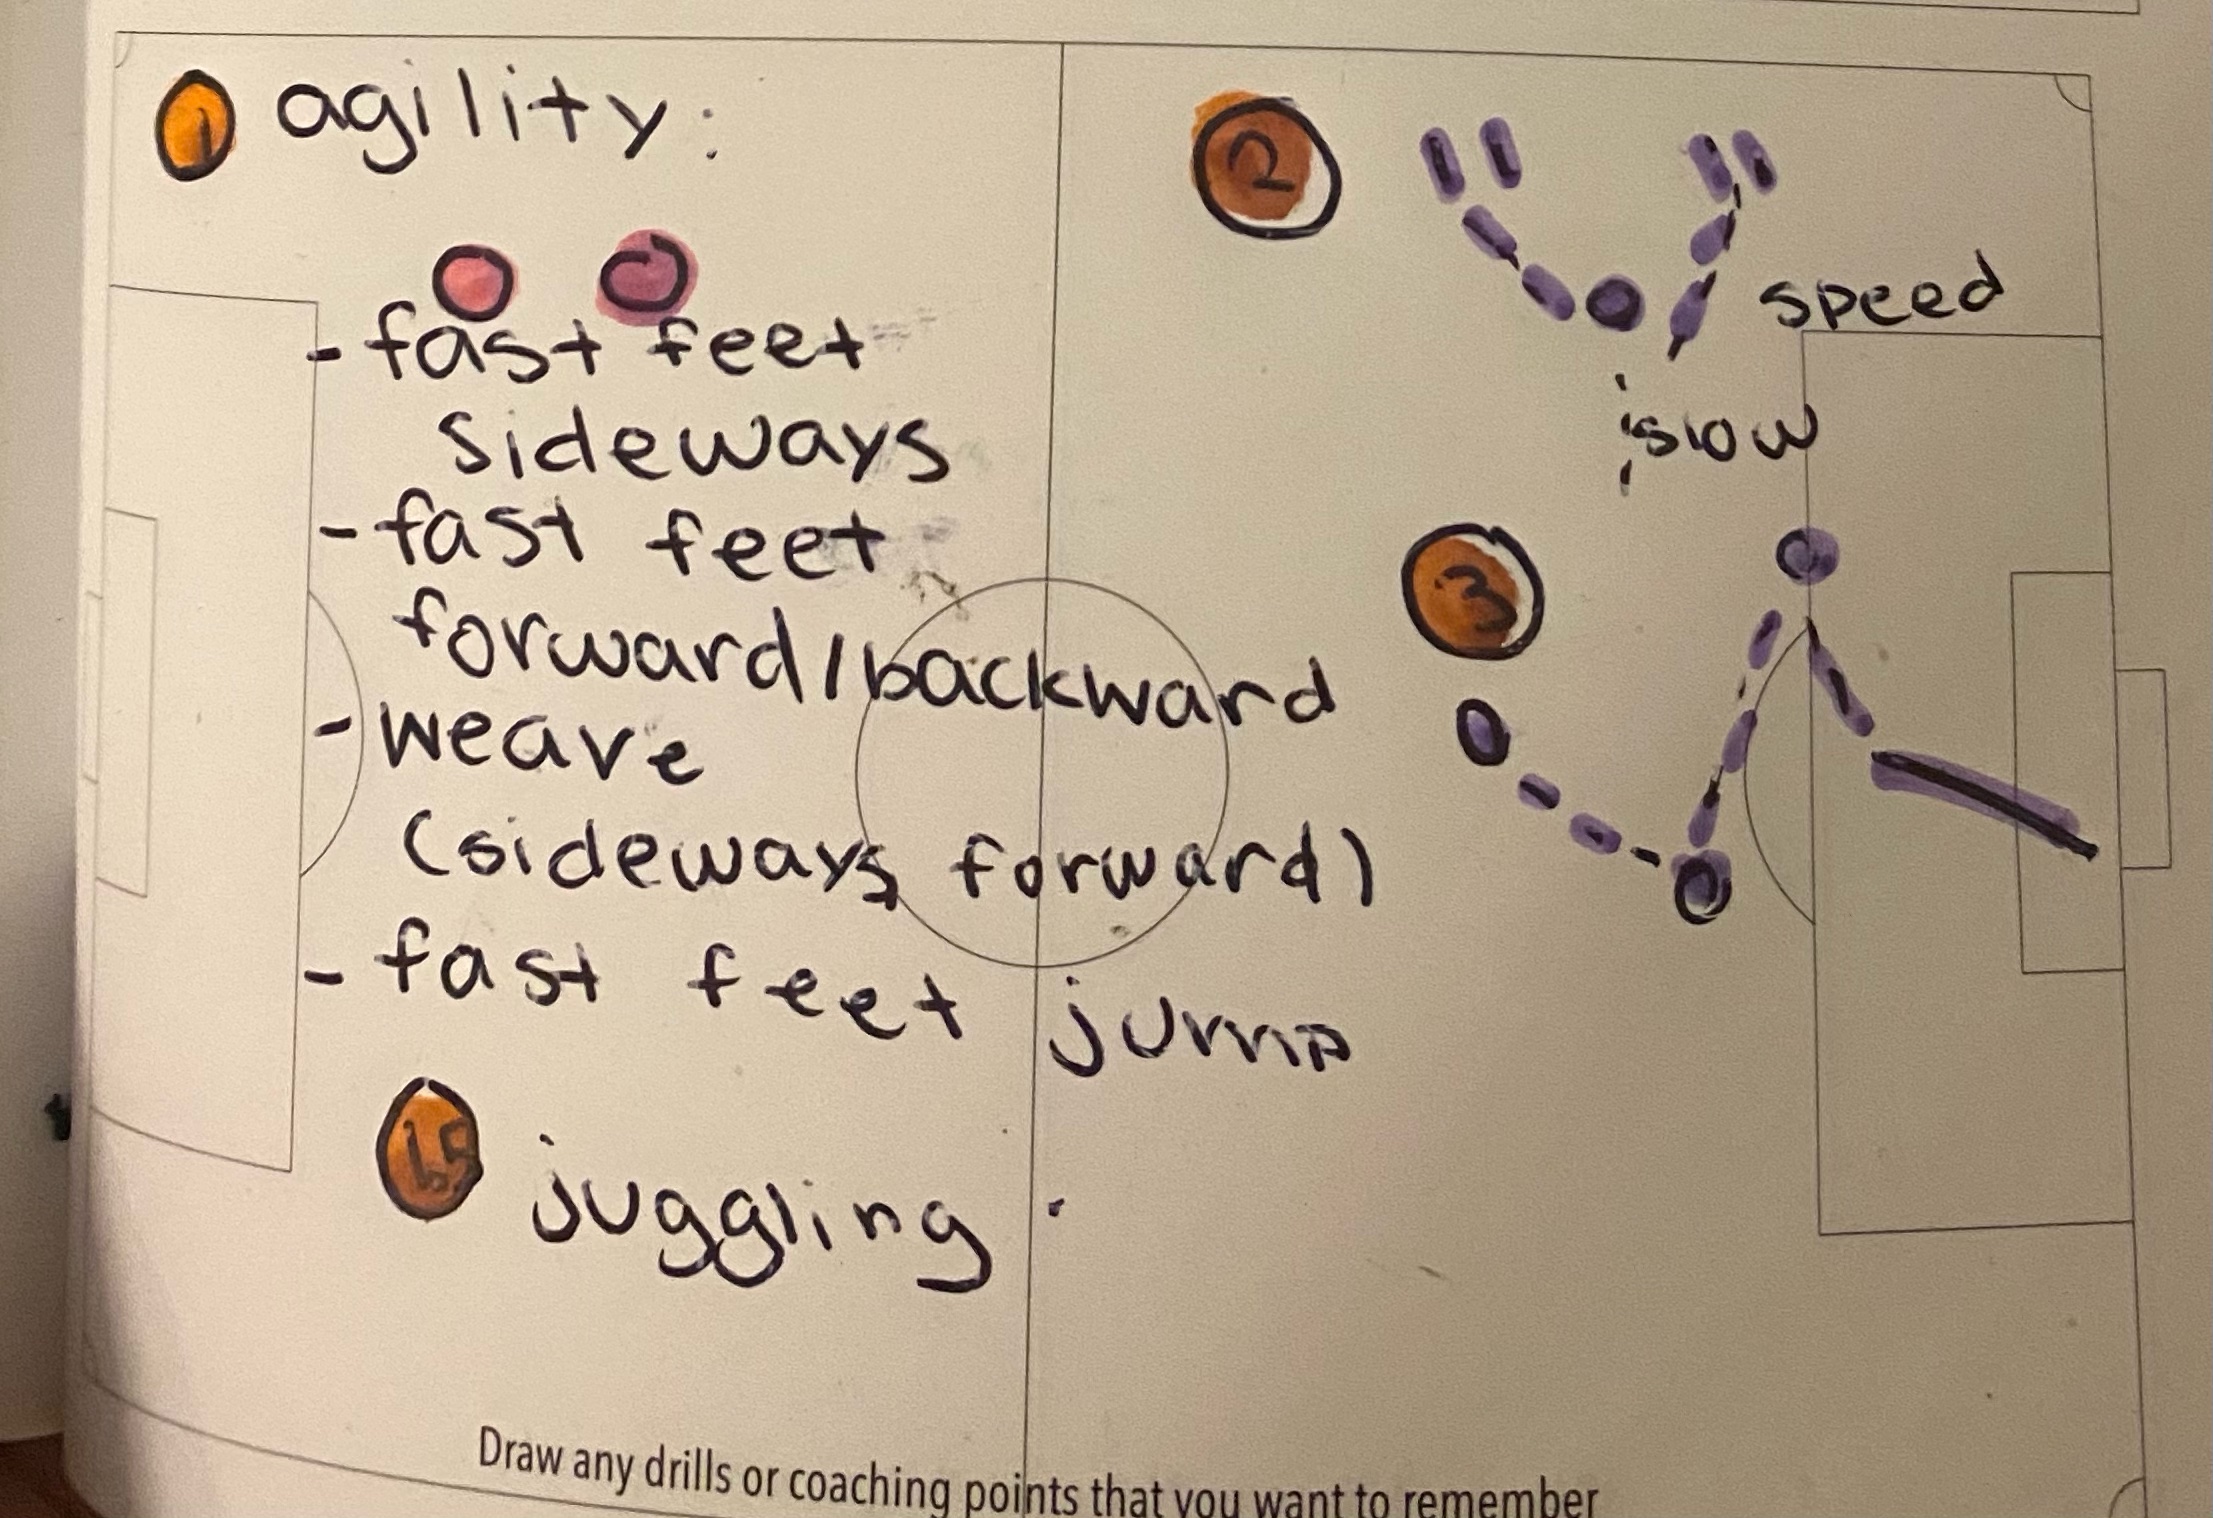 1 agility:
- fast feet
sideways
- fast feet
forward/backward
- weave
(sideways, forward)
- fast feet jump
1.5 juggling
2
speed
slow
3
Draw any drills or coaching points that you want to remember